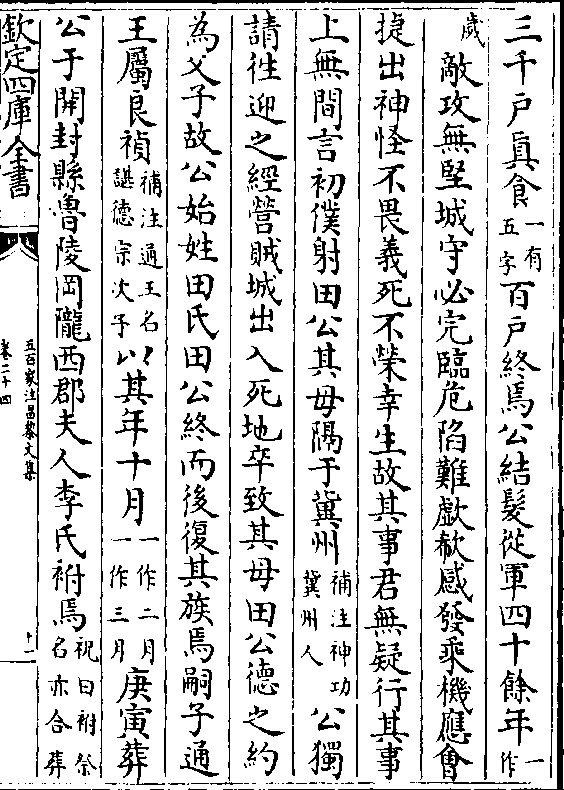 三千戸真食一有五字百戸終焉公結髮從軍四十餘年一作
歲敵攻無堅城守必完臨危陷難歔欷感發乘機應會
捷出神怪不畏義死不榮幸生故其事君無疑行其事
上無間言初僕射田公其母隔于冀州補注神功冀州人公獨
請徃迎之經營賊城出入死地卒致其母田公德之約
為父子故公始姓田氏田公終而後復其族焉嗣子通
王屬良禎補注通王名諶德宗次子以其年十月一作二月一作三月庚寅葬
公于開封縣魯陵岡隴西郡夫人李氏祔焉祝曰祔祭名亦合葬
欽定四庫全書
五百家注昌黎文集
卷二十四
十一